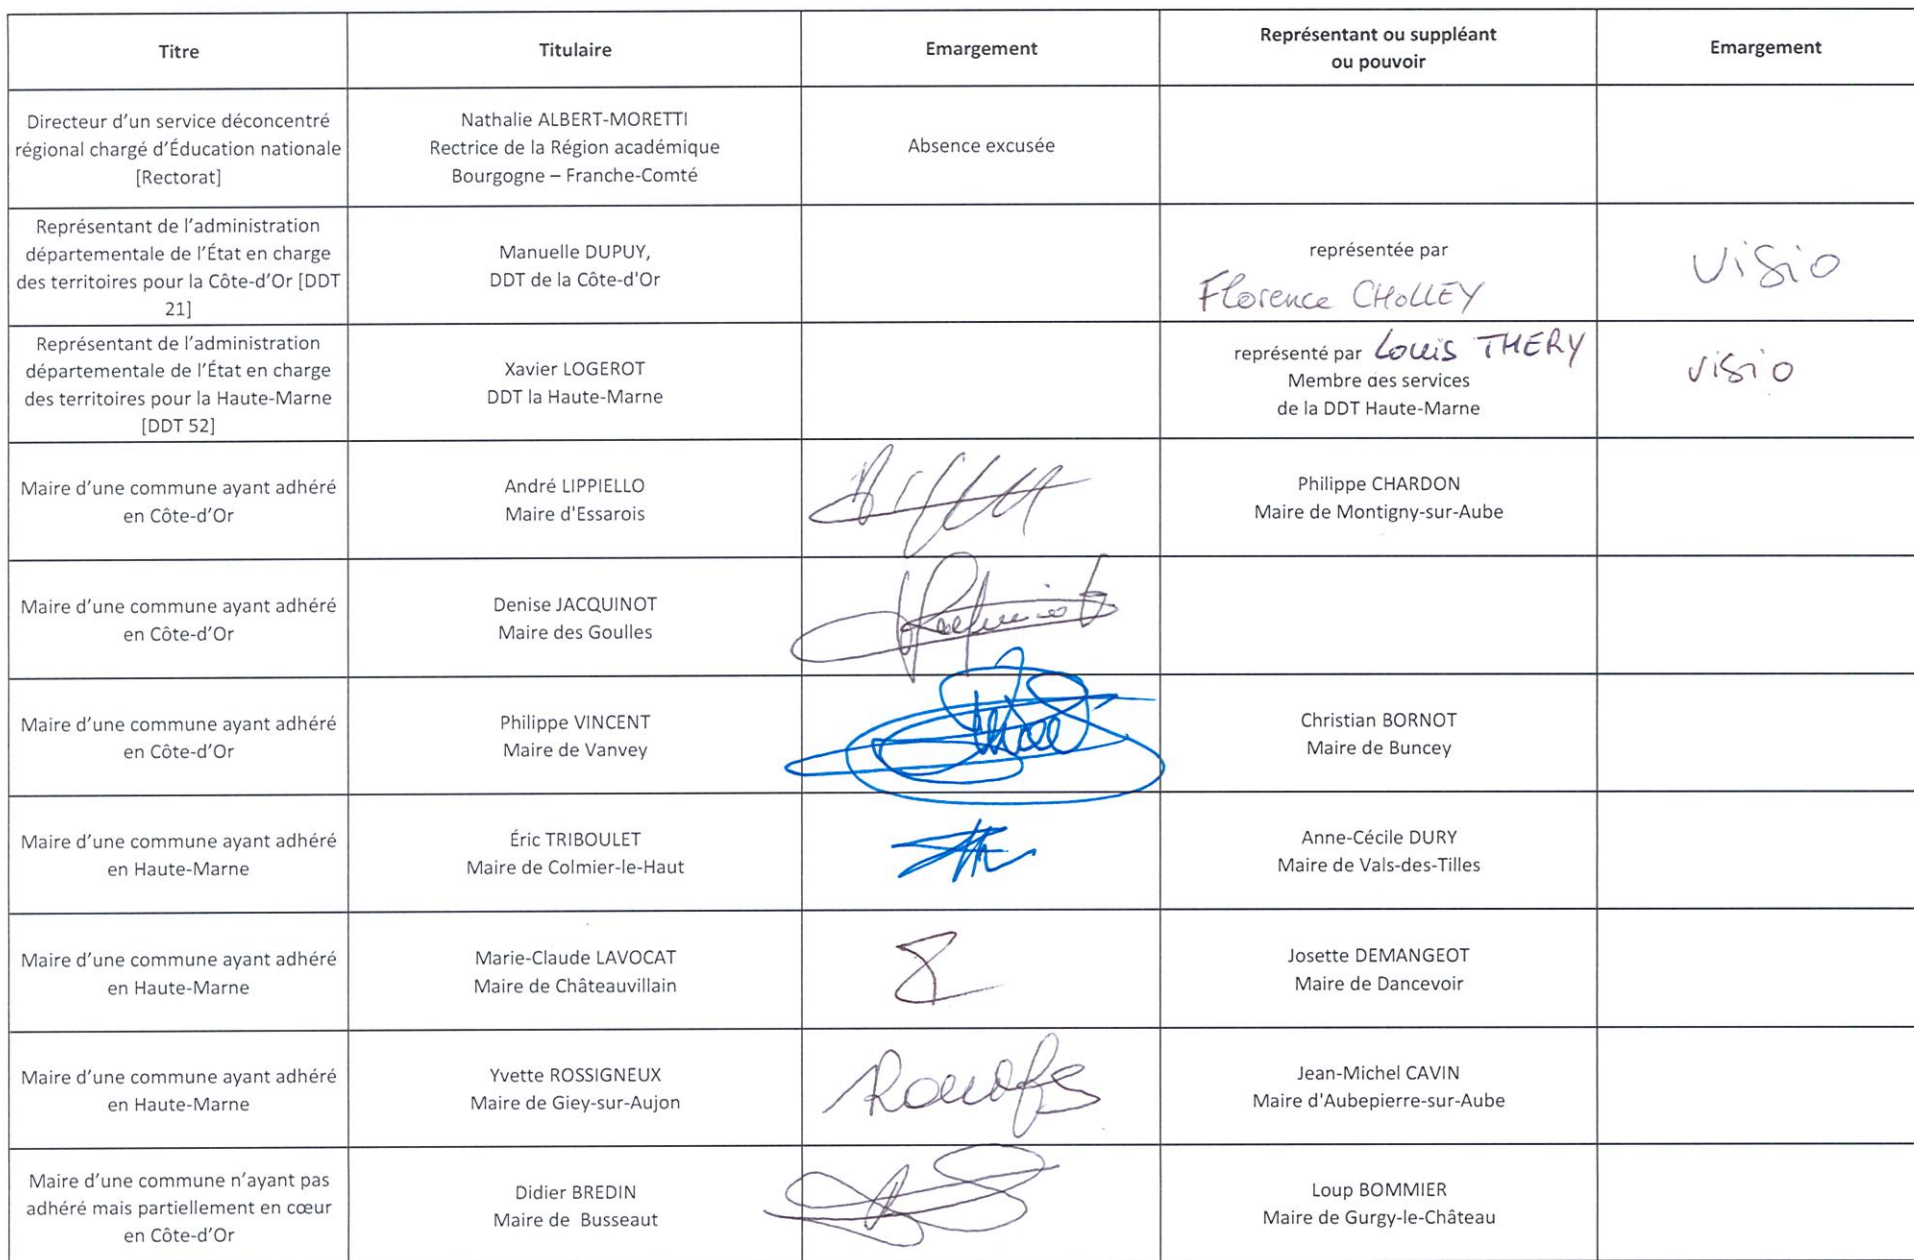 Titre
Titulaire
Emargement
Représentant ou suppléant
ou pouvoir
Emargement
Directeur d’un service déconcentré
régional chargé d’Éducation nationale
[Rectorat]
Nathalie ALBERT-MORETTI
Rectrice de la Région académique
Bourgogne – Franche-Comté
Absence excusée
Représentant de l’administration
départementale de l’État en charge
des territoires pour la Côte-d’Or [DDT
21]
Manuelle DUPUY,
DDT de la Côte-d'Or
représentée par
Florence CHOLLEY
visio
Représentant de l’administration
départementale de l’État en charge
des territoires pour la Haute-Marne
[DDT 52]
Xavier LOGEROT
DDT la Haute-Marne
représenté par Louis THERY
Membre des services
de la DDT Haute-Marne
visio
Maire d’une commune ayant adhéré
en Côte-d’Or
André LIPPIELLO
Maire d'Essarois
Philippe CHARDON
Maire de Montigny-sur-Aube
Maire d’une commune ayant adhéré
en Côte-d’Or
Denise JACQUINOT
Maire des Goulles
Maire d’une commune ayant adhéré
en Côte-d’Or
Philippe VINCENT
Maire de Vanvey
Christian BORNOT
Maire de Buncey
Maire d’une commune ayant adhéré
en Haute-Marne
Éric TRIBOULET
Maire de Colmier-le-Haut
Anne-Cécile DURY
Maire de Vals-des-Tilles
Maire d’une commune ayant adhéré
en Haute-Marne
Marie-Claude LAVOCAT
Maire de Châteauvillain
Josette DEMANGEOT
Maire de Dancevoir
Maire d’une commune ayant adhéré
en Haute-Marne
Yvette ROSSIGNEUX
Maire de Giey-sur-Aujon
Jean-Michel CAVIN
Maire d'Aubepierre-sur-Aube
Maire d’une commune n’ayant pas
adhéré mais partiellement en cœur
en Côte-d’Or
Didier BREDIN
Maire de Busseaut
Loup BOMMIER
Maire de Gurgy-le-Château